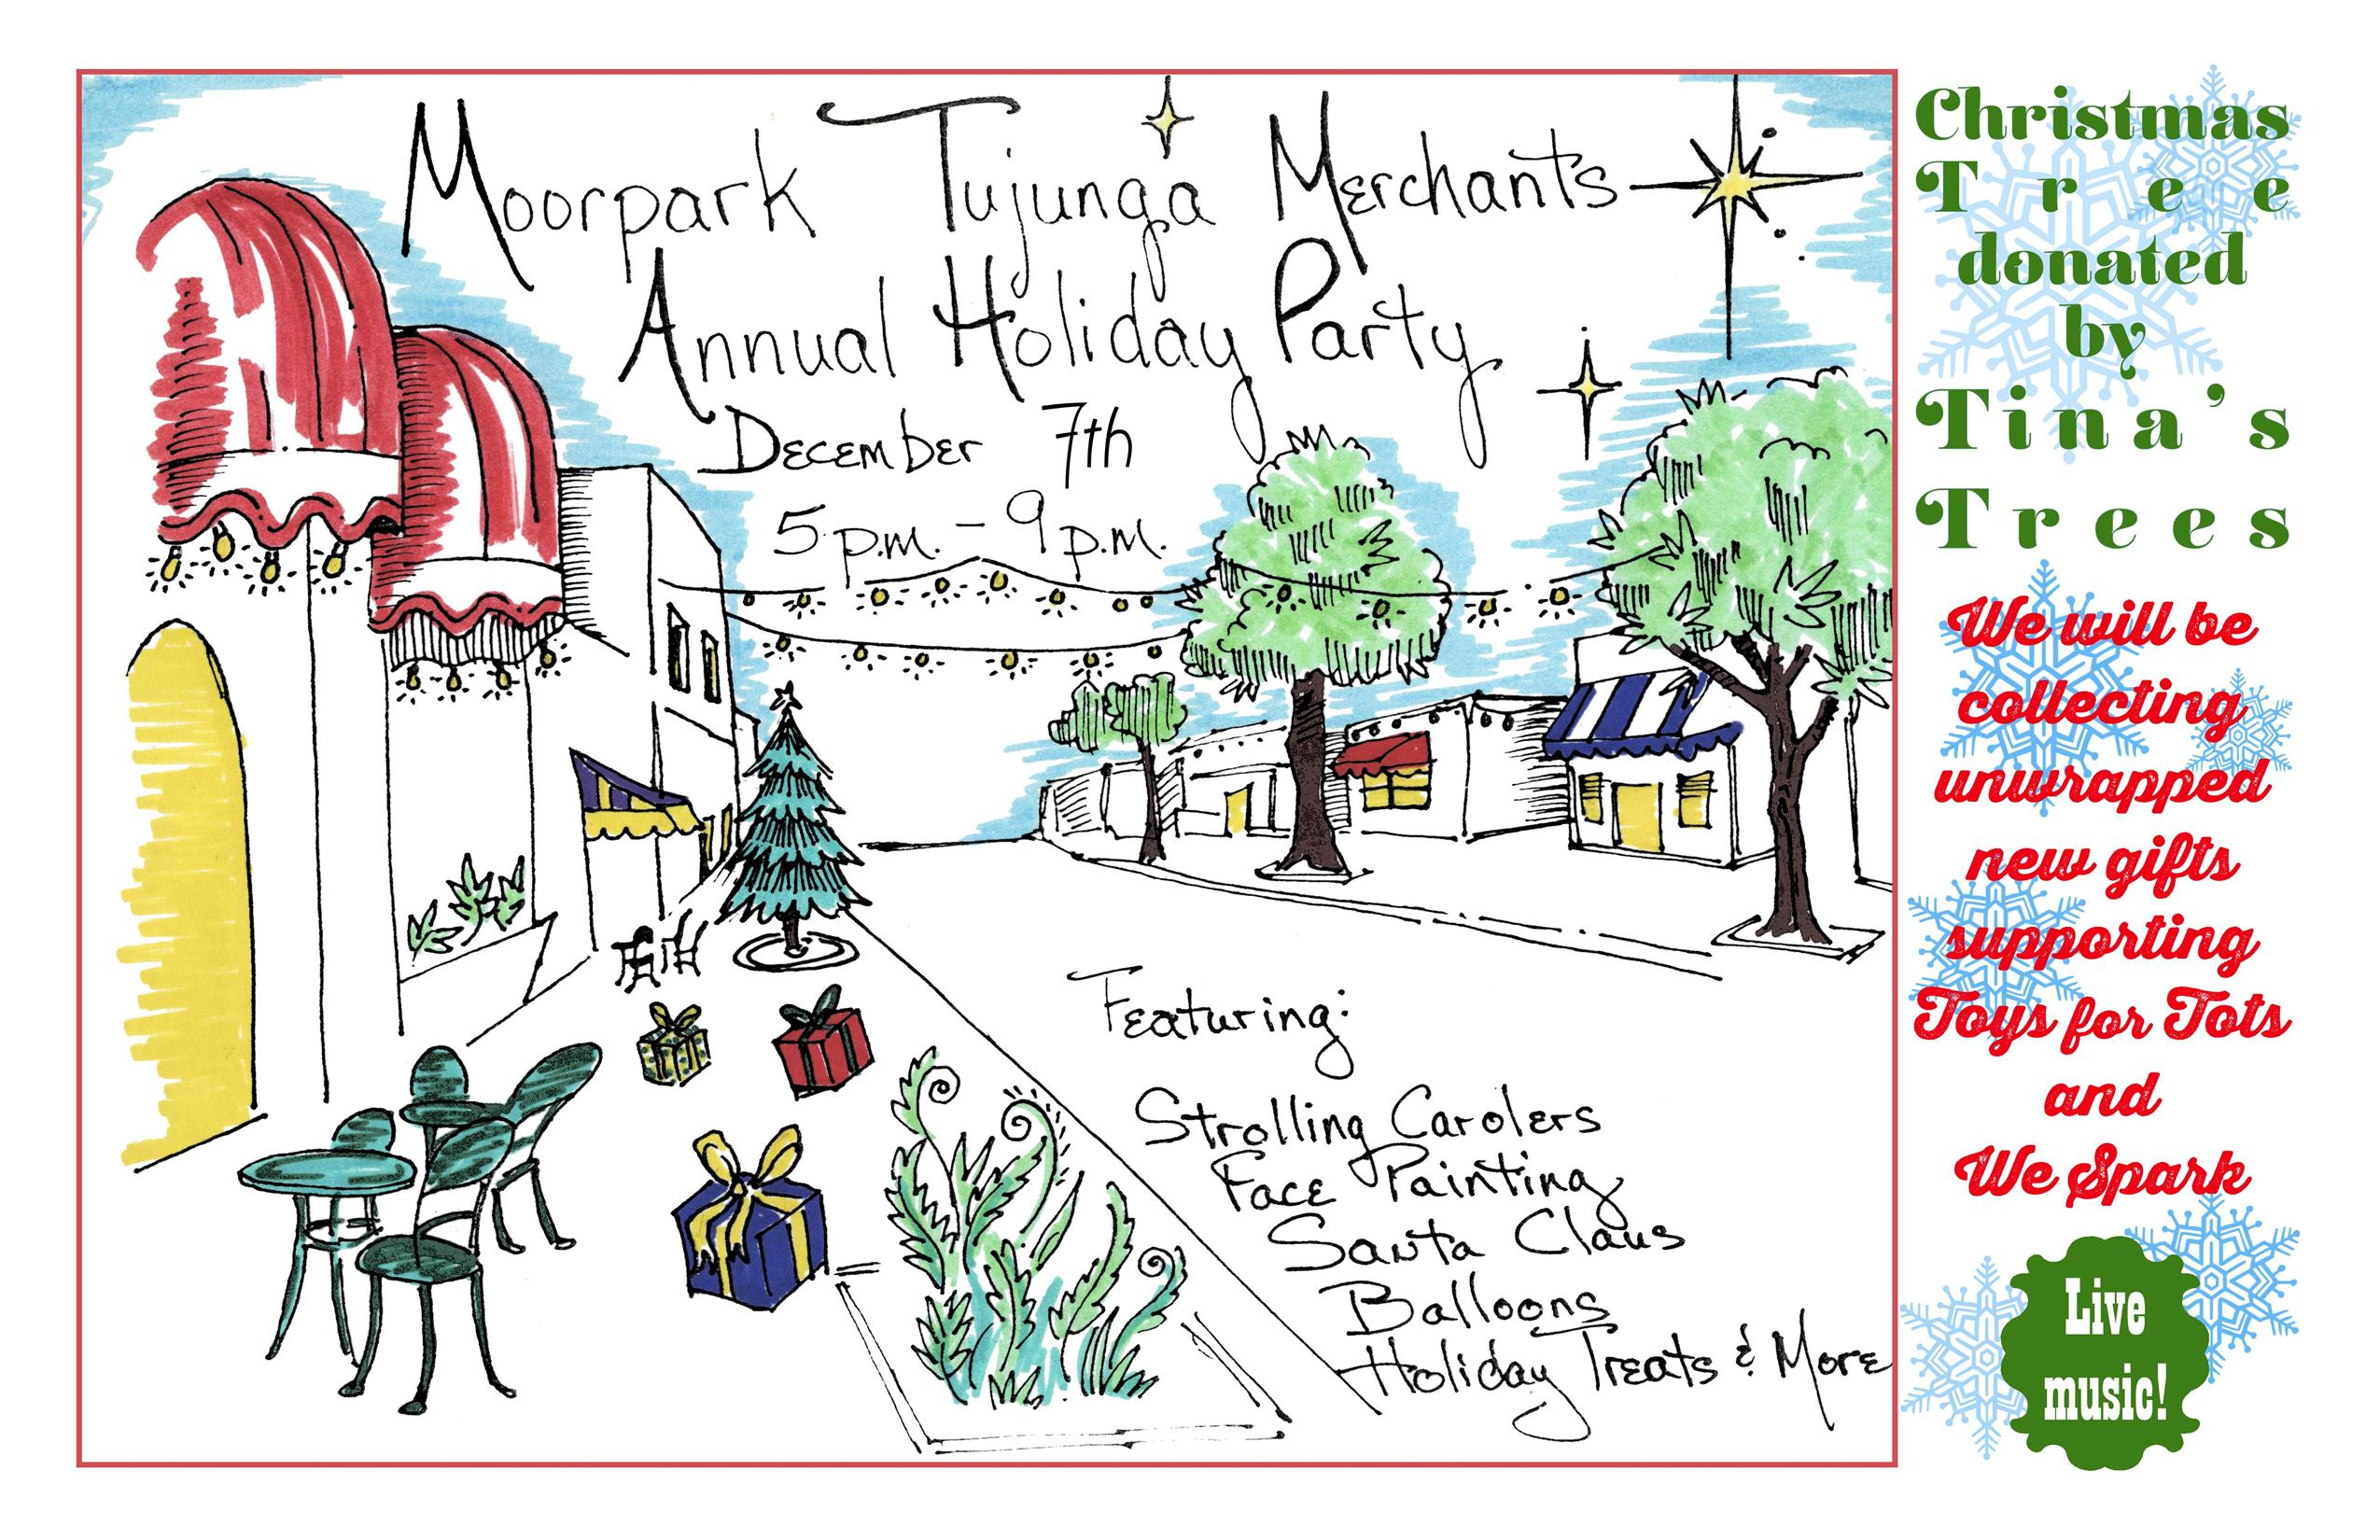 Moorpark Tujunga Merchants
Annual Holiday Party
December 7th
5 p.m. - 9 p.m.
Featuring:
Strolling Carolers
Face Painting
Santa Claus
Balloons
Holiday Treats & More
Christmas
Tree
donated
by
Tina's
Trees
We will be
collecting
unwrapped
new gifts
supporting
Toys for Tots
and
We Spark
Live
music!